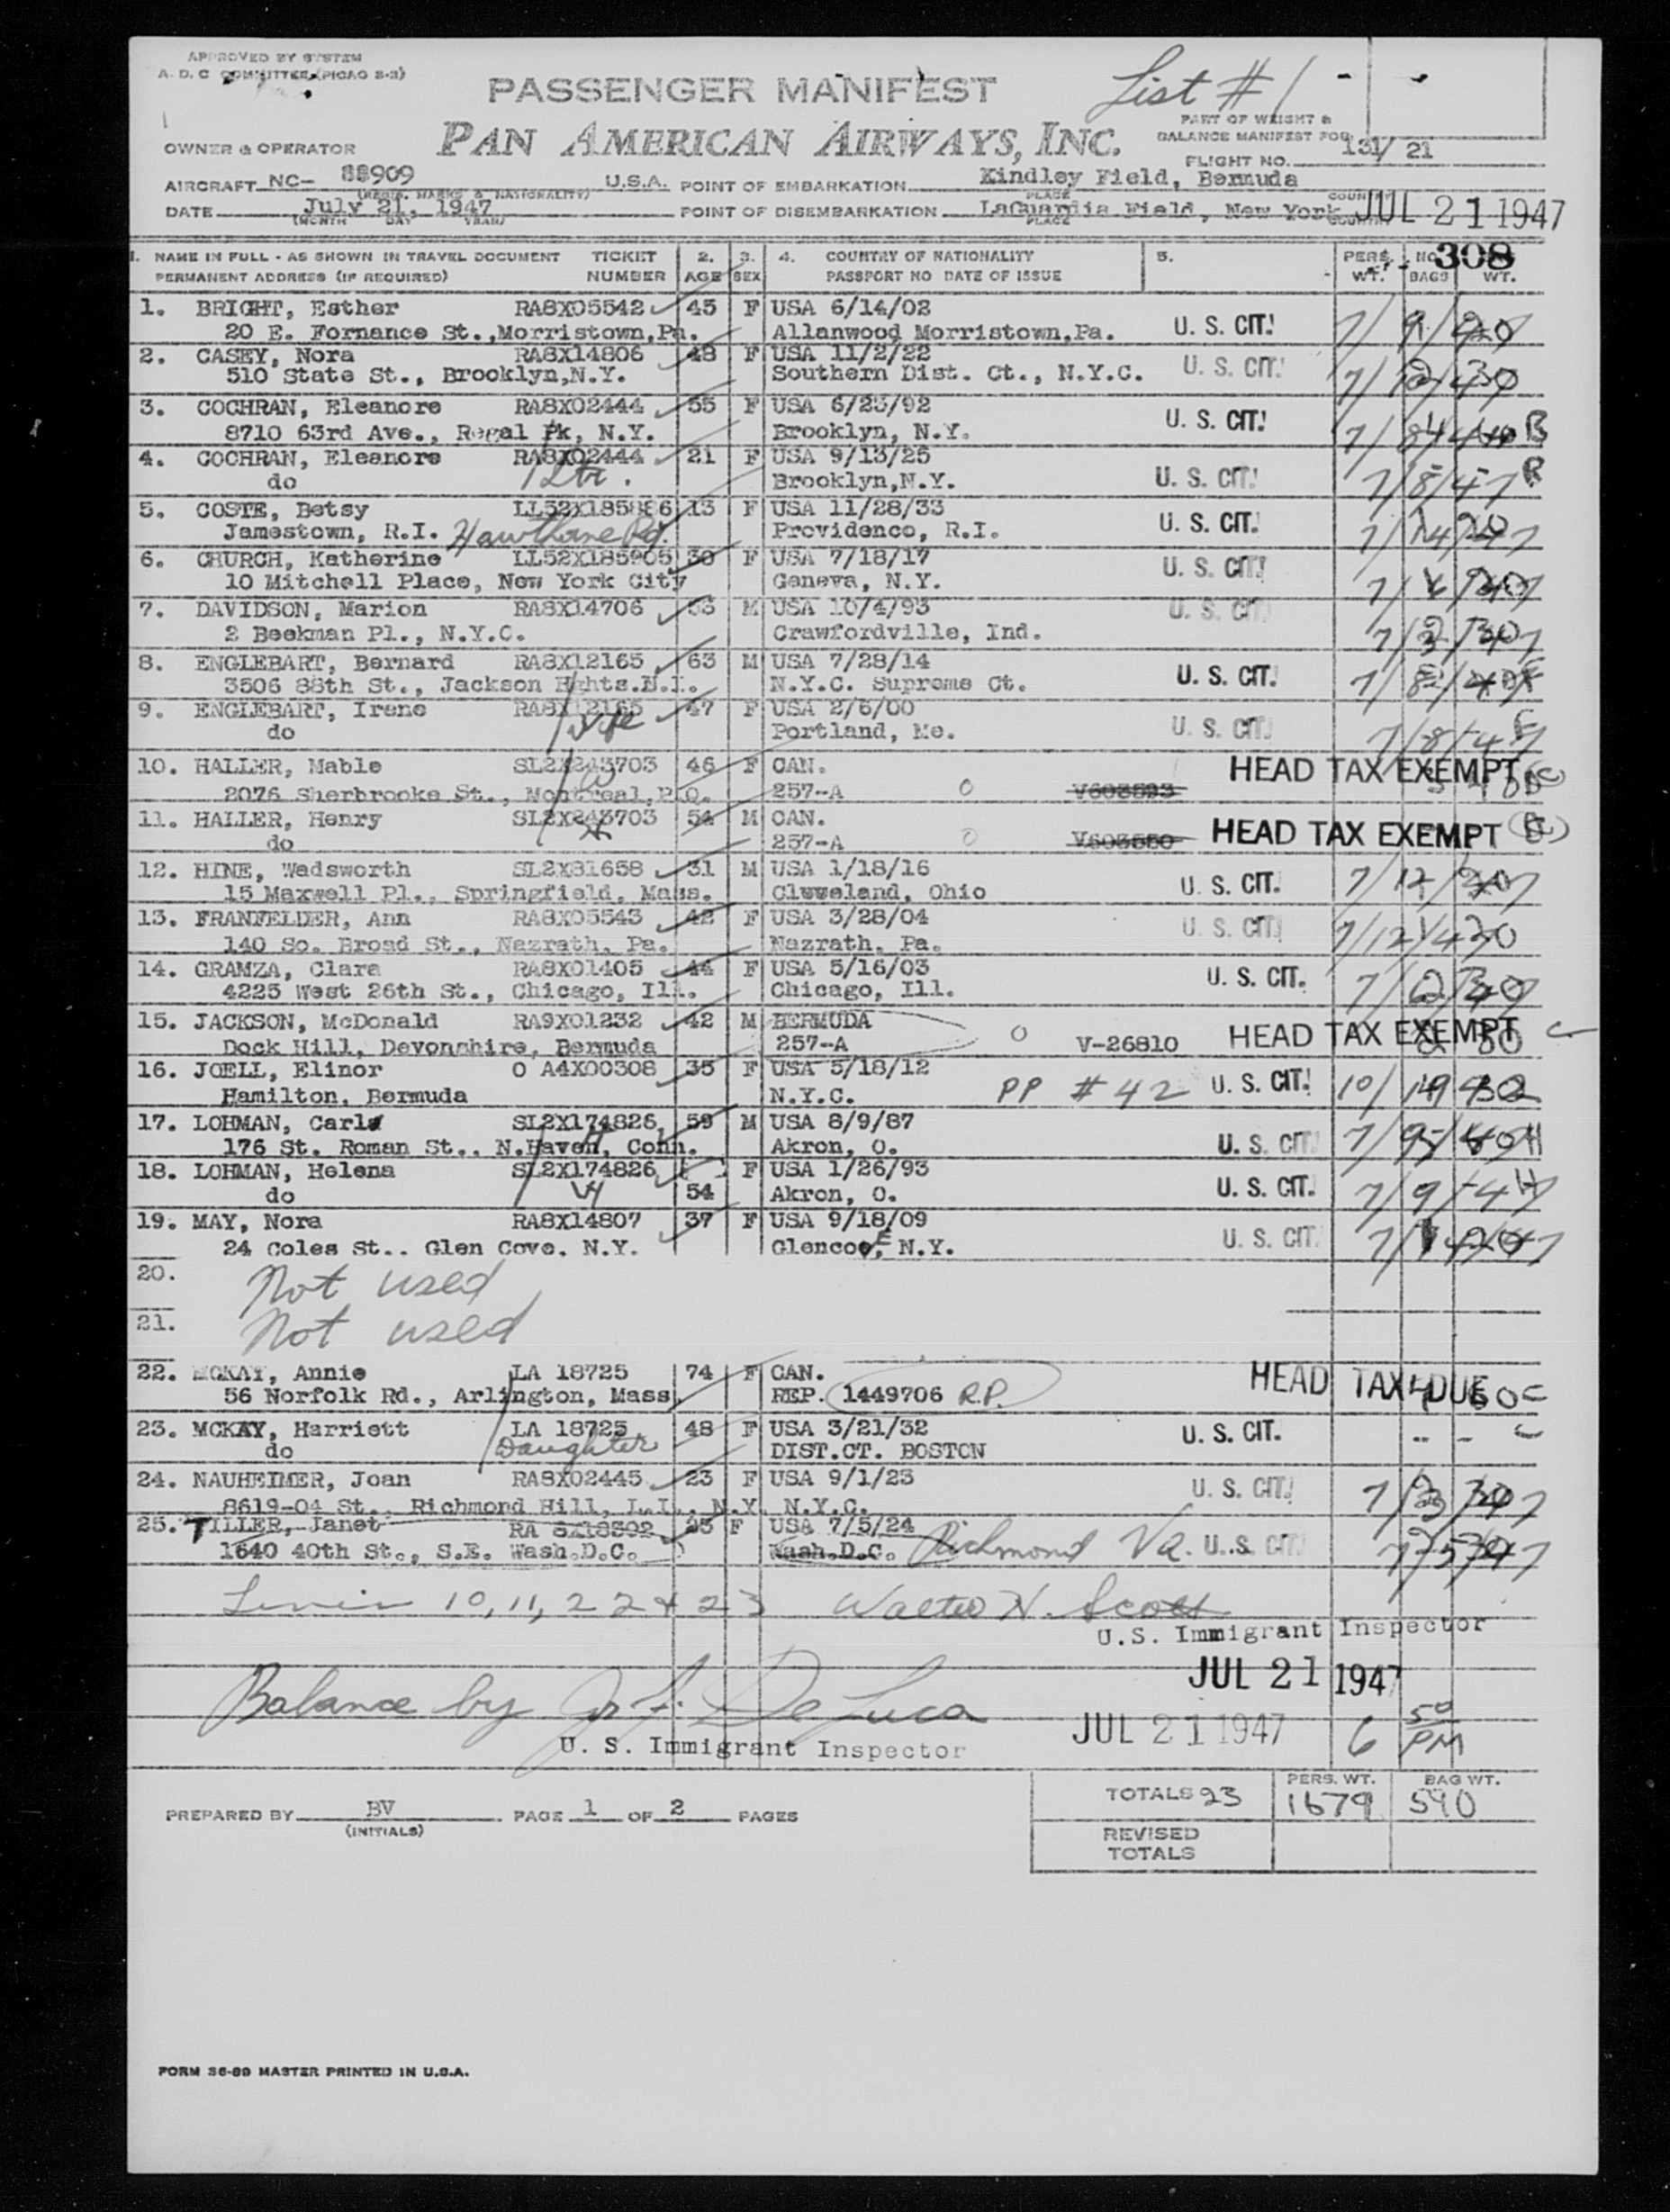 APPROVED BY SYSTEM
A. D. C COMMITTEE (PICAO S-3)
PASSENGER MANIFEST
List # 1
PART OF WEIGHT &
BALANCE MANIFEST FOR
PAN AMERICAN AIRWAYS, INC.
OWNER & OPERATOR
FLIGHT NO. 131/ 21
AIRCRAFT NC- 88909 U.S.A. POINT OF EMBARKATION Kindley Field, Bermuda
(REGIS. MARKS & NATIONALITY) PLACE COUNTRY
DATE July 21, 1947 POINT OF DISEMBARKATION LaGuardia Field, New York JUL 21 1947
(MONTH DAY YEAR) PLACE COUNTRY
308
1. NAME IN FULL - AS SHOWN IN TRAVEL DOCUMENT TICKET 2. 3. 4. COUNTRY OF NATIONALITY 5. PERS. NO.
PERMANENT ADDRESS (IF REQUIRED) NUMBER AGE SEX PASSPORT NO DATE OF ISSUE WT. BAGS WT.
1. BRIGHT, Esther RA8X05542 45 F USA 6/14/02
20 E. Fornance St.,Morristown,Pa. Allanwood Morristown,Pa. U. S. CIT.
2. CASEY, Nora RA8X14806 48 F USA 11/2/22
510 State St., Brooklyn,N.Y. Southern Dist. Ct., N.Y.C. U. S. CIT.
3. COCHRAN, Eleanore RA8X02444 55 F USA 6/23/92
8710 63rd Ave., Regal Pk, N.Y. Brooklyn, N.Y. U. S. CIT.
4. COCHRAN, Eleanore RA8X02444 21 F USA 9/13/25
do Dtr. Brooklyn,N.Y. U. S. CIT.
5. COSTE, Betsy LL52X185886 13 F USA 11/28/33
Jamestown, R.I. Hawthorne Rd. Providence, R.I. U. S. CIT.
6. CHURCH, Katherine LL52X185905 30 F USA 7/18/17
10 Mitchell Place, New York City Geneva, N.Y. U. S. CIT.
7. DAVIDSON, Marion RA8X14706 53 M USA 10/4/93
2 Beekman Pl., N.Y.C. Crawfordville, Ind. U. S. CIT.
8. ENGLEBART, Bernard RA8X12165 63 M USA 7/28/14
3506 88th St., Jackson Hghts.N.Y. N.Y.C. Supreme Ct. U. S. CIT.
9. ENGLEBART, Irene RA8X12165 47 F USA 2/6/00
do wife Portland, Me. U. S. CIT.
10. HALLER, Mable SL2X243703 46 F CAN. HEAD TAX EXEMPT
2076 Sherbrooke St., Montreal,P.Q. W 257-A 0 V603523
11. HALLER, Henry SL2X243703 54 M CAN. HEAD TAX EXEMPT
do H 257-A 0 V603550
12. HINE, Wadsworth SL2X81658 31 M USA 1/18/16
15 Maxwell Pl., Springfield, Mass. Cleveland, Ohio U. S. CIT.
13. FRANFELDER, Ann RA8X05543 42 F USA 3/28/04
140 So. Broad St., Nazrath, Pa. Nazrath, Pa. U. S. CIT.
14. GRAMZA, Clara RA8X01405 44 F USA 5/16/03
4225 West 26th St., Chicago, Ill. Chicago, Ill. U. S. CIT.
15. JACKSON, McDonald RA9X01232 42 M BERMUDA HEAD TAX EXEMPT
Dock Hill, Devonshire, Bermuda 257-A 0 V-26810
16. JOELL, Elinor O A4X00308 35 F USA 5/18/12
Hamilton, Bermuda N.Y.C. PP # 42 U. S. CIT.
17. LOHMAN, Carl SL2X174826 59 M USA 8/9/87
176 St. Roman St., N.Haven, Conn. H Akron, O. U. S. CIT.
18. LOHMAN, Helena SL2X174826 F USA 1/26/93
do W 54 Akron, O. U. S. CIT.
19. MAY, Nora RA8X14807 37 F USA 9/18/09
24 Coles St., Glen Cove, N.Y. Glencove, N.Y. U. S. CIT.
20. Not used
21. Not used
22. MCKAY, Annie LA 18725 74 F CAN. HEAD TAX DUE
56 Norfolk Rd., Arlington, Mass. REP. 1449706 R.P.
23. MCKAY, Harriett LA 18725 48 F USA 3/21/32 U. S. CIT.
do Daughter DIST.CT. BOSTON
24. NAUHEIMER, Joan RA8X02445 23 F USA 9/1/23
8619-04 St., Richmond Hill, L.I., N.Y. N.Y.C. U. S. CIT.
25. TILLER, Janet RA 8X18302 23 F USA 7/5/24
1640 40th St., S.E. Wash.D.C. Wash.D.C. Richmond Va. U. S. CIT.
Lines 10, 11, 22 & 23 Walter N. Scott
U.S. Immigrant Inspector
JUL 21 1947
Balance by Jos. F. De Luca
JUL 21 1947 6 50 PM
U. S. Immigrant Inspector
TOTALS 23 PERS. WT. 1679 BAG WT. 590
PREPARED BY BV PAGE 1 OF 2 PAGES
(INITIALS)
REVISED
TOTALS
FORM 36-89 MASTER PRINTED IN U.S.A.